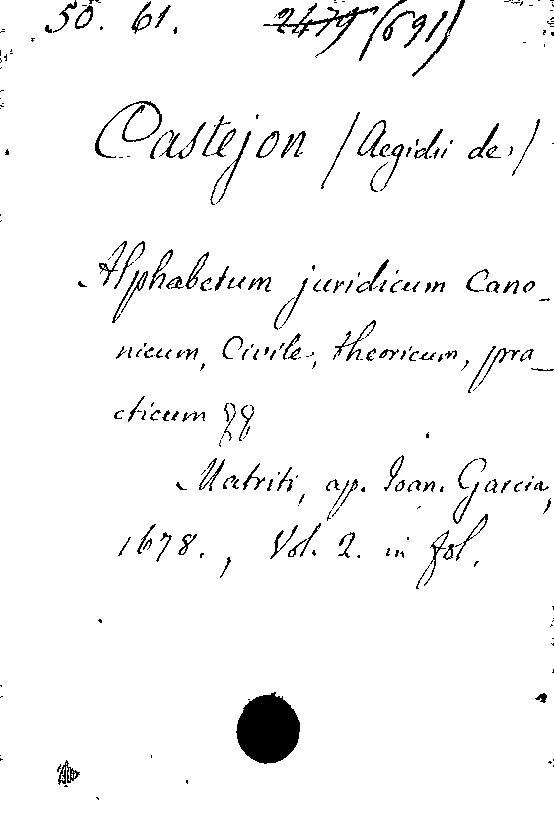 50. 61. 2479 (691)
Castejon /Aegidii de./
Alphabetum juridicum Cano_
nicum, Civile, theoricum, pra_
cticum &c
Matriti, ap. Ioan. Garcia,
1678., Vol. 2. in fol.